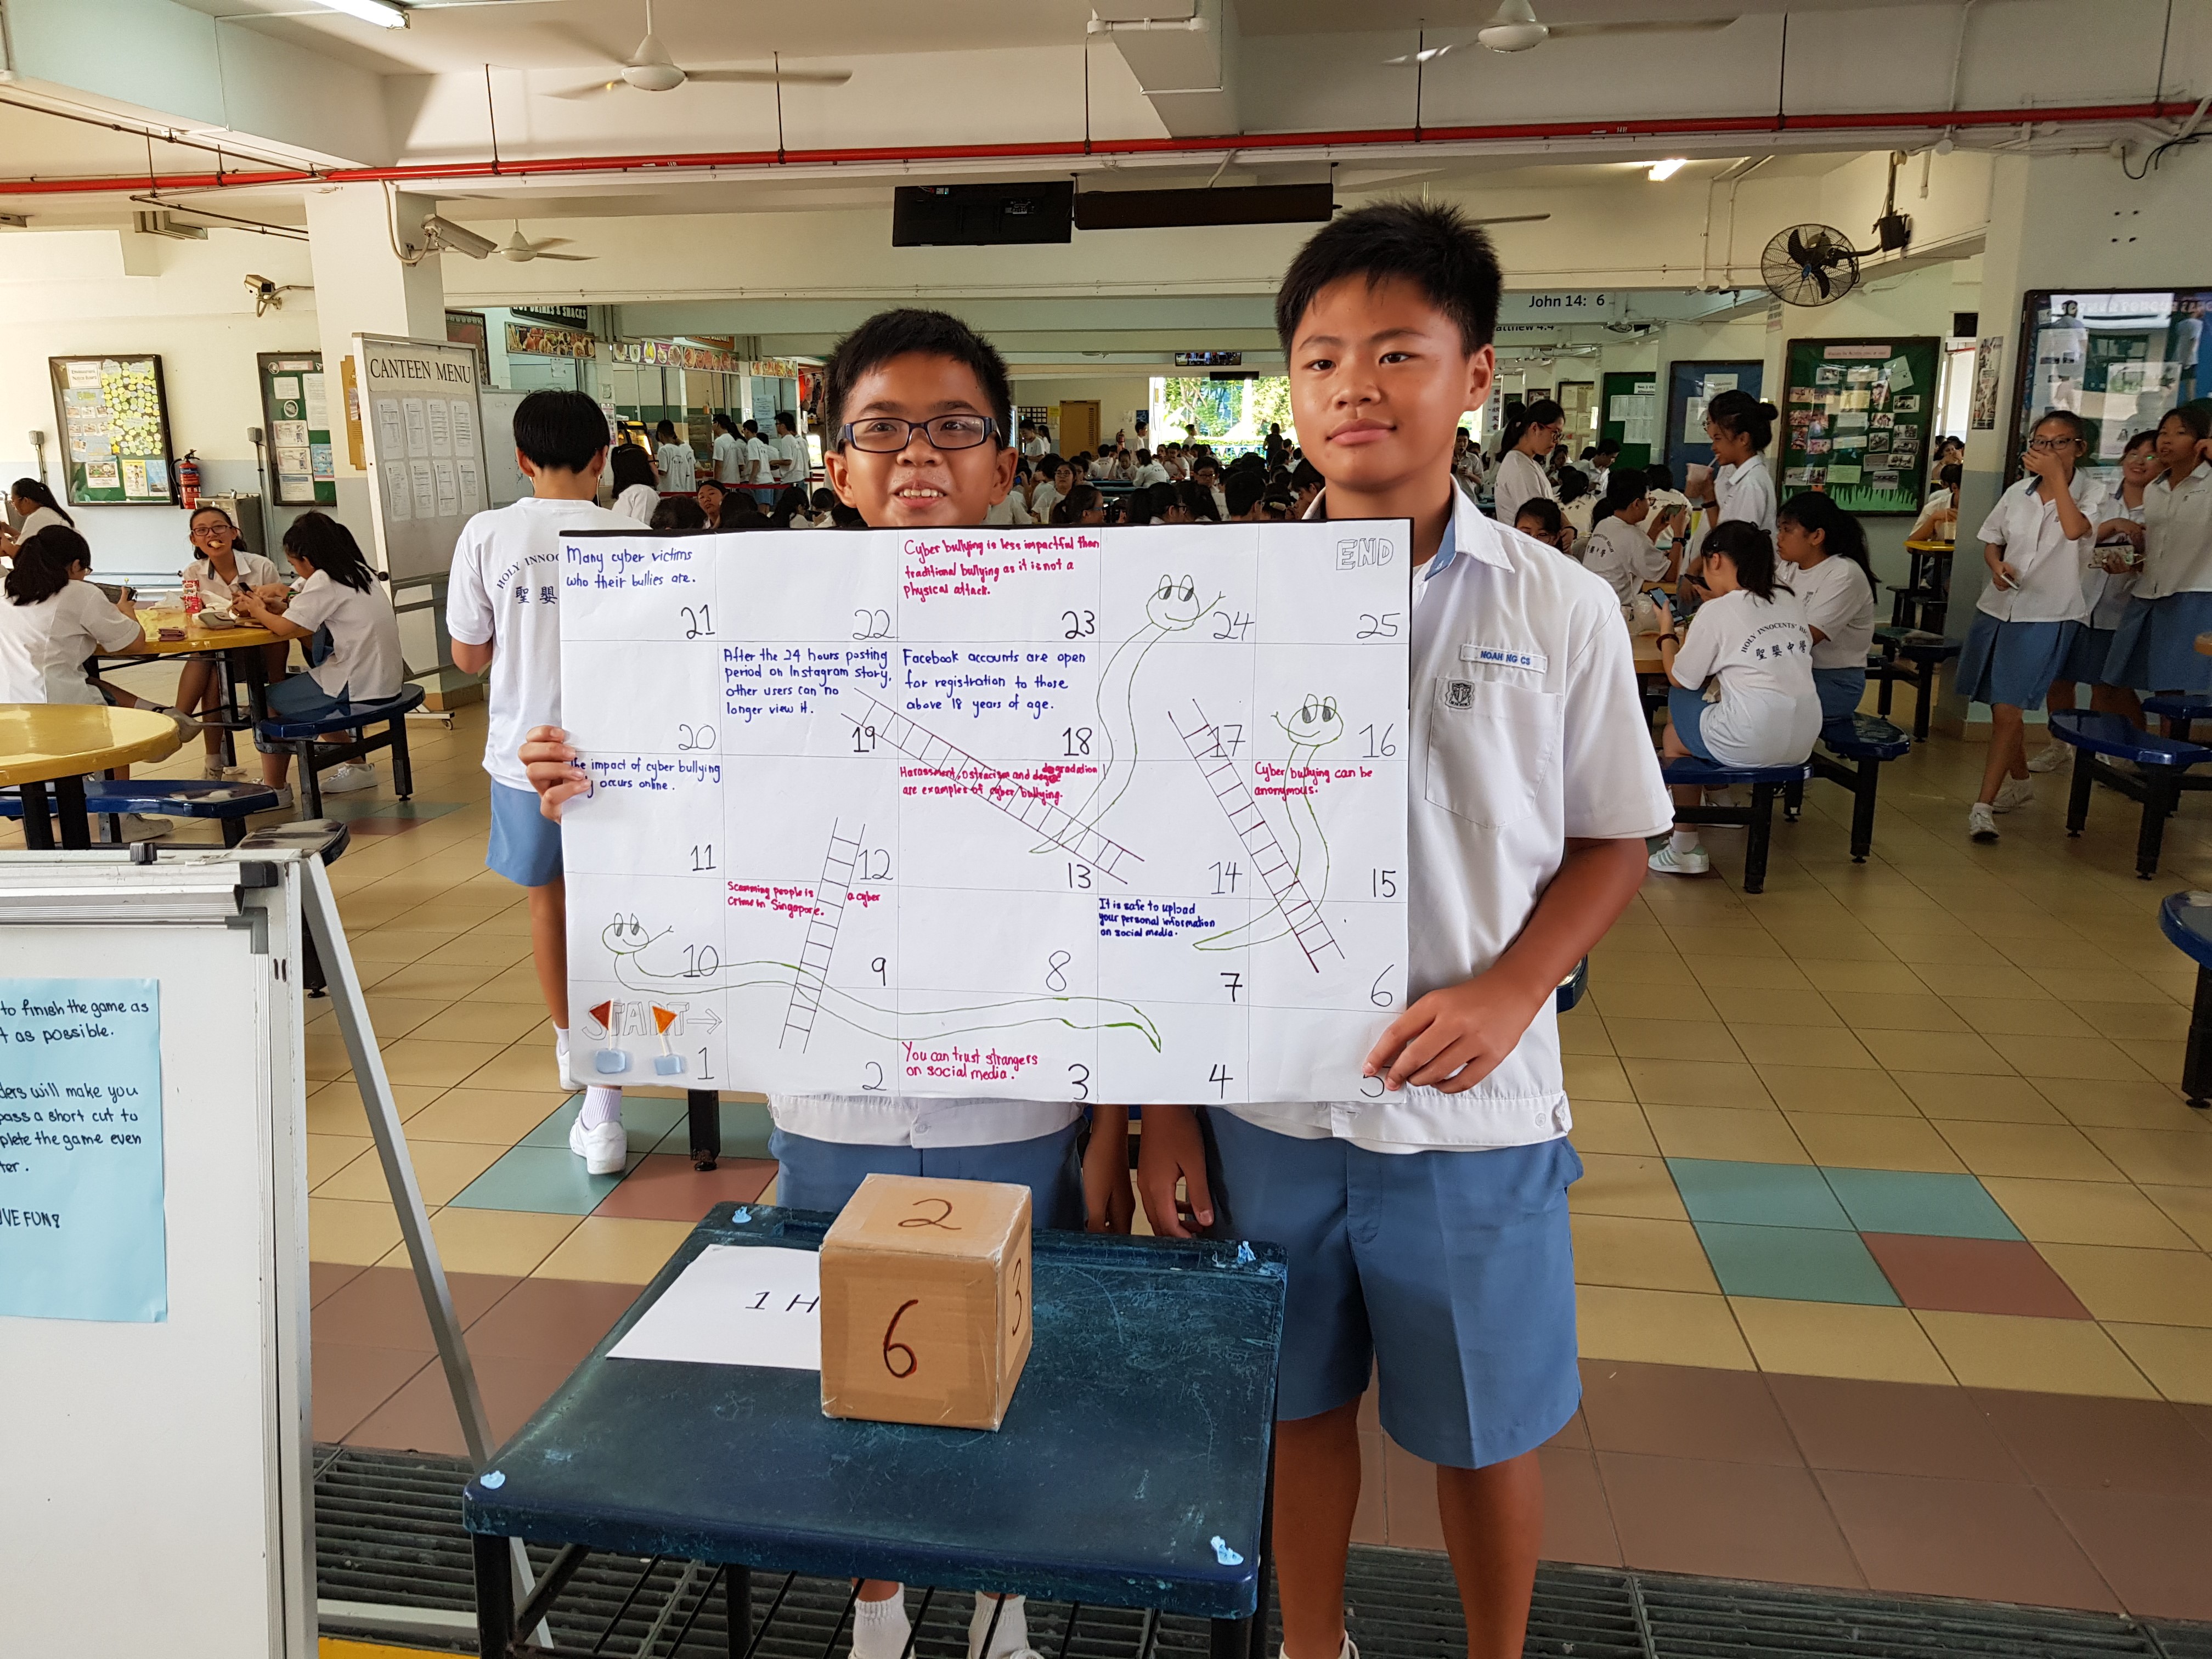 John 14: 6
Matthew 4:4
CANTEEN MENU
HOLY INNOC
聖嬰
HOLY INNOCENTS' H
聖嬰中學
NOAH NG CS
Many cyber victims
who their bullies are.
21
22
Cyber bullying is less impactful than
traditional bullying as it is not a
physical attack.
23
24
END
25
20
After the 24 hours posting
period on Instagram story,
other users can no
longer view it.
19
Facebook accounts are open
for registration to those
above 18 years of age.
18
17
16
the impact of cyber bullying
occurs online.
11
12
Harassment, ostracism and degradation
are examples of cyber bullying.
13
14
Cyber bullying can be
anonymous.
15
10
Scamming people is a cyber
crime in Singapore.
9
8
It is safe to upload
your personal information
on social media.
7
6
START
1
2
You can trust strangers
on social media.
3
4
5
to finish the game as
t as possible.
ders will make you
pass a short cut to
plete the game even
ter.
VE FUN!
1 H
2
6
3